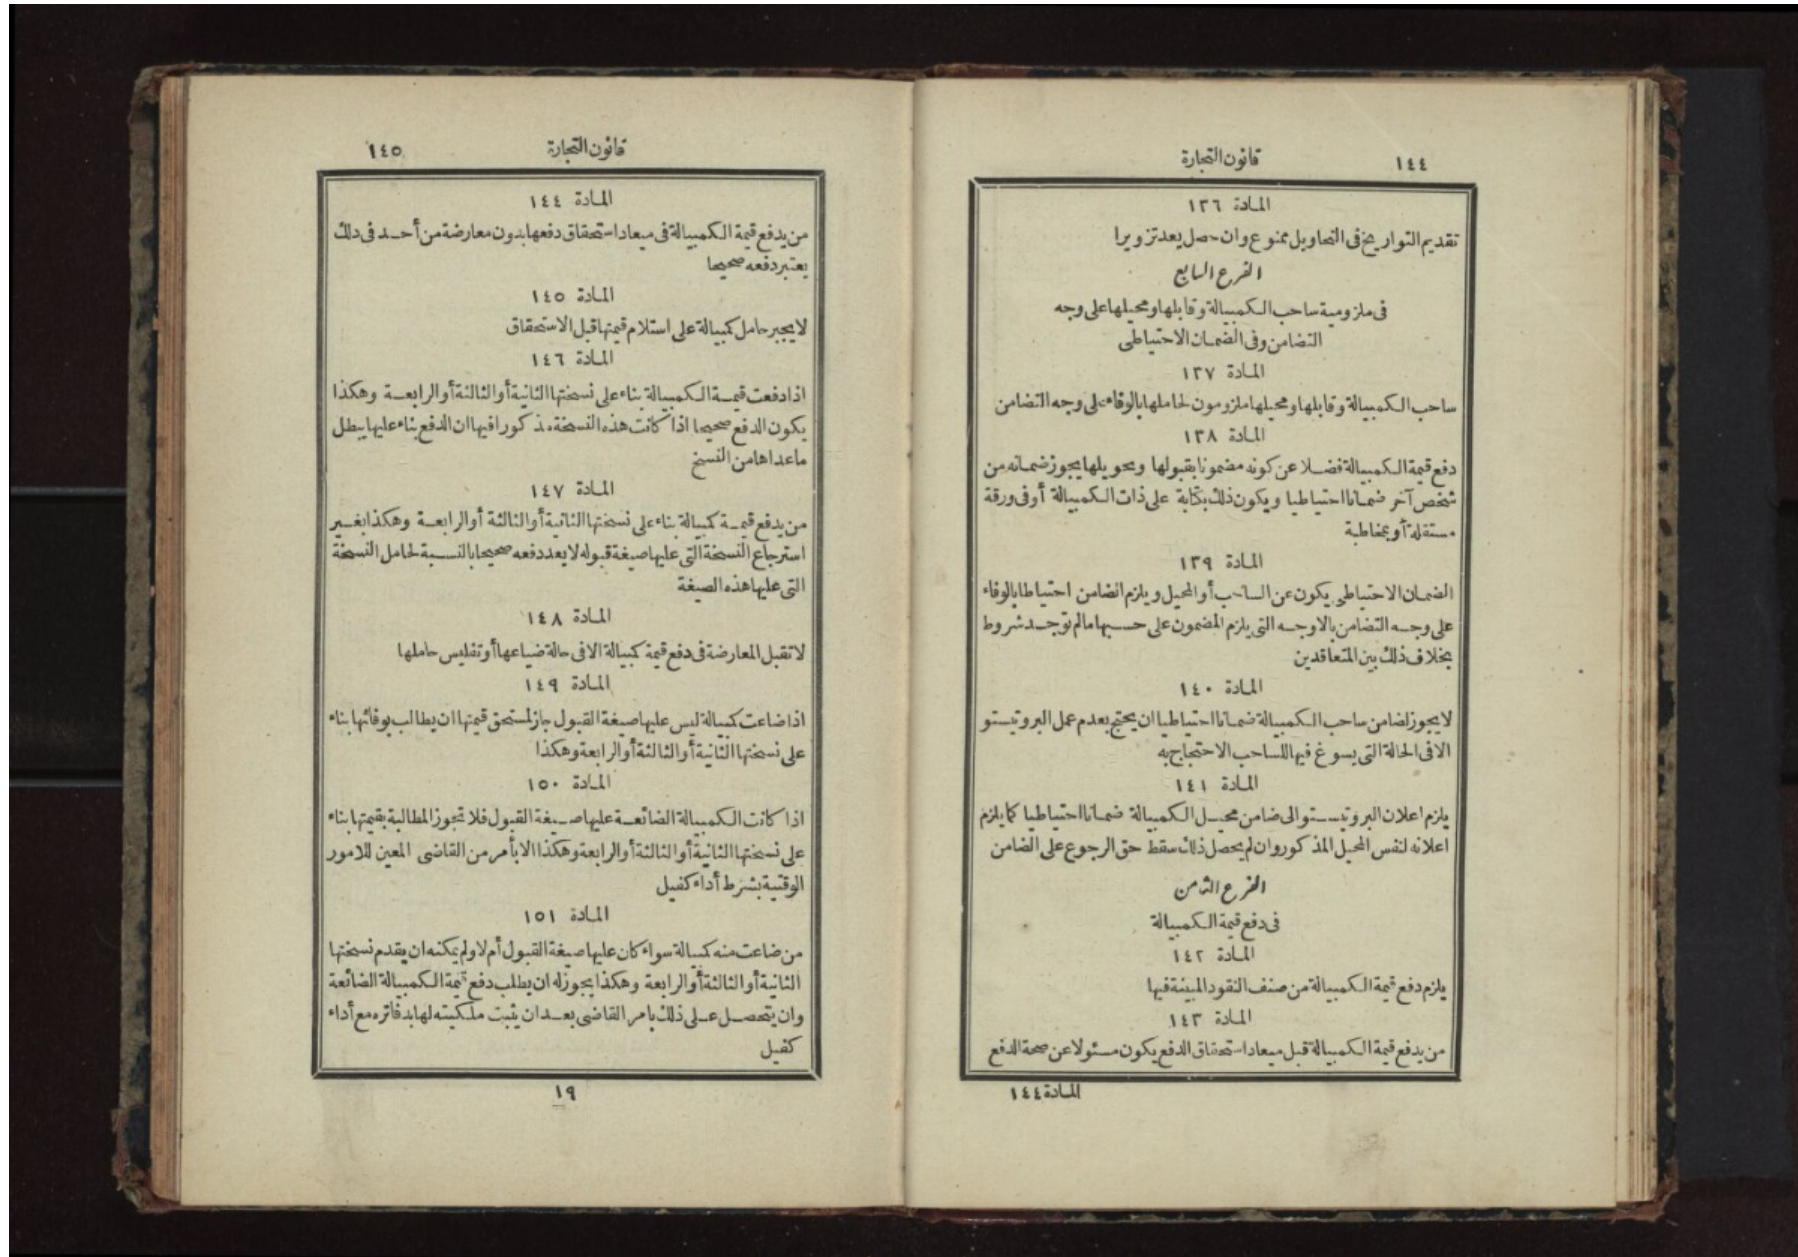 ١٤٤
قانون التجارة
المادة ١٣٦
تقديم التواريخ فى التحاويل ممنوع وان حصل يعد تزويرا
الفرع السابع
فى ملزومية ساحب الكمبيالة وقابلها ومحيلها على وجه
التضامن وفى الضمان الاحتياطى
المادة ١٣٧
ساحب الكمبيالة وقابلها ومحيلها ملزومون لحاملها بالوفاء على وجه التضامن
المادة ١٣٨
دفع قيمة الكمبيالة فضلا عن كونه مضمونا بقبولها وبحويلها يجوز ضمانه من
شخص آخر ضمانا احتياطيا ويكون ذلك بكتابة على ذات الكمبيالة أو فى ورقة
مستقلة أو بمخاطبة
المادة ١٣٩
الضمان الاحتياطى يكون عن الساحب أو المحيل ويلزم الضامن احتياطا بالوفاء
على وجه التضامن بالاوجه التى يلزم المضمون على حسبها مالم توجد شروط
بخلاف ذلك بين المتعاقدين
المادة ١٤٠
لايجوز لضامن ساحب الكمبيالة ضمانا احتياطيا ان يحتج بعدم عمل البروتيستو
الا فى الحالة التى يسوغ فيها للساحب الاحتجاج به
المادة ١٤١
يلزم اعلان البروتيستو الى ضامن محيل الكمبيالة ضمانا احتياطيا كما يلزم
اعلانه لنفس المحيل المذكور وان لم يحصل ذلك سقط حق الرجوع على الضامن
الفرع الثامن
فى دفع قيمة الكمبيالة
المادة ١٤٢
يلزم دفع قيمة الكمبيالة من صنف النقود المبينة فيها
المادة ١٤٣
من يدفع قيمة الكمبيالة قبل ميعاد استحقاق الدفع يكون مسئولا عن صحة الدفع
المادة ١٤٤
قانون التجارة
١٤٥
المادة ١٤٤
من يدفع قيمة الكمبيالة فى ميعاد استحقاق دفعها بدون معارضة من أحد فى ذلك
يعتبر دفعه صحيحا
المادة ١٤٥
لايجبر حامل كمبيالة على استلام قيمتها قبل الاستحقاق
المادة ١٤٦
اذا دفعت قيمة الكمبيالة بناء على نسختها الثانية أو الثالثة أو الرابعة وهكذا
يكون الدفع صحيحا اذا كانت هذه النسخة مذكورا فيها ان الدفع بناء عليها يبطل
ماعداها من النسخ
المادة ١٤٧
من يدفع قيمة كمبيالة بناء على نسختها الثانية أو الثالثة أو الرابعة وهكذا بغير
استرجاع النسخة التى عليها صيغة قبوله لا يعد دفعه صحيحا بالنسبة لحامل النسخة
التى عليها هذه الصيغة
المادة ١٤٨
لا تقبل المعارضة فى دفع قيمة كمبيالة الا فى حالة ضياعها أو تفليس حاملها
المادة ١٤٩
اذا ضاعت كمبيالة ليس عليها صيغة القبول جاز لمستحق قيمتها ان يطالب بوفائها بناء
على نسختها الثانية أو الثالثة أو الرابعة وهكذا
المادة ١٥٠
اذا كانت الكمبيالة الضائعة عليها صيغة القبول فلا تجوز المطالبة بقيمتها بناء
على نسختها الثانية أو الثالثة أو الرابعة وهكذا الا بأمر من القاضى المعين للامور
الوقتية بشرط أداء كفيل
المادة ١٥١
من ضاعت منه كمبيالة سواء كان عليها صيغة القبول أم لا ولم يمكنه ان يقدم نسختها
الثانية أو الثالثة أو الرابعة وهكذا يجوز له ان يطلب دفع قيمة الكمبيالة الضائعة
وان يتحصل على ذلك بامر القاضى بعد ان يثبت ملكيته لها بدفاتره مع أداء
كفيل
١٩